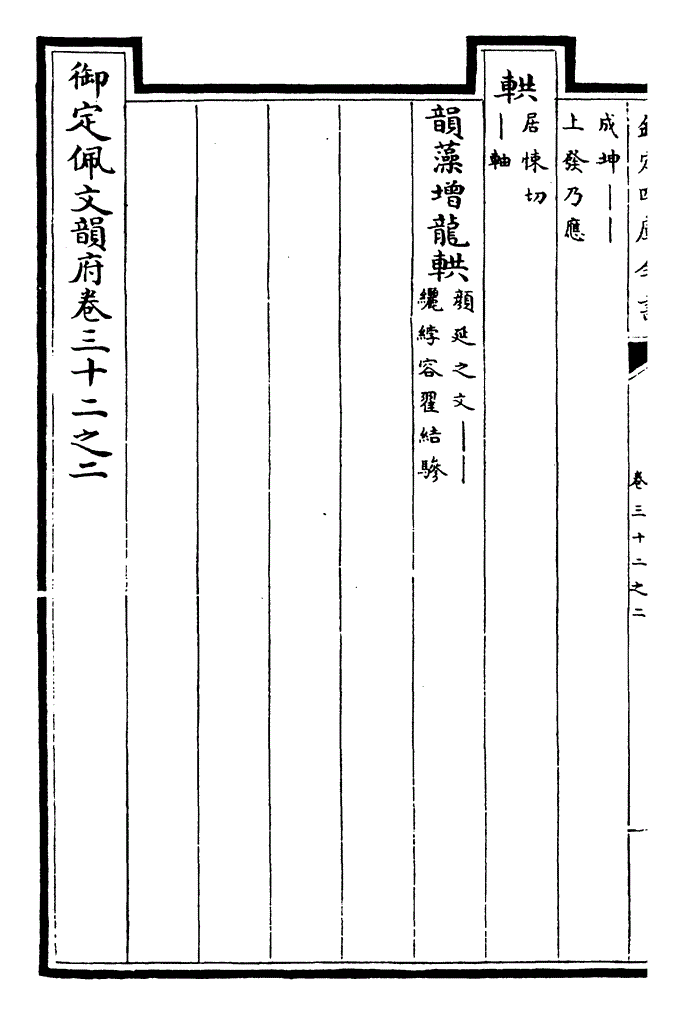 欽定四庫全書
卷三十二之二
成坤｜｜
上發乃應
䡗
居悚切
｜軸
韻藻增龍䡗
顔延之文｜｜
纚綍容翟結驂
御定佩文韻府卷三十二之二